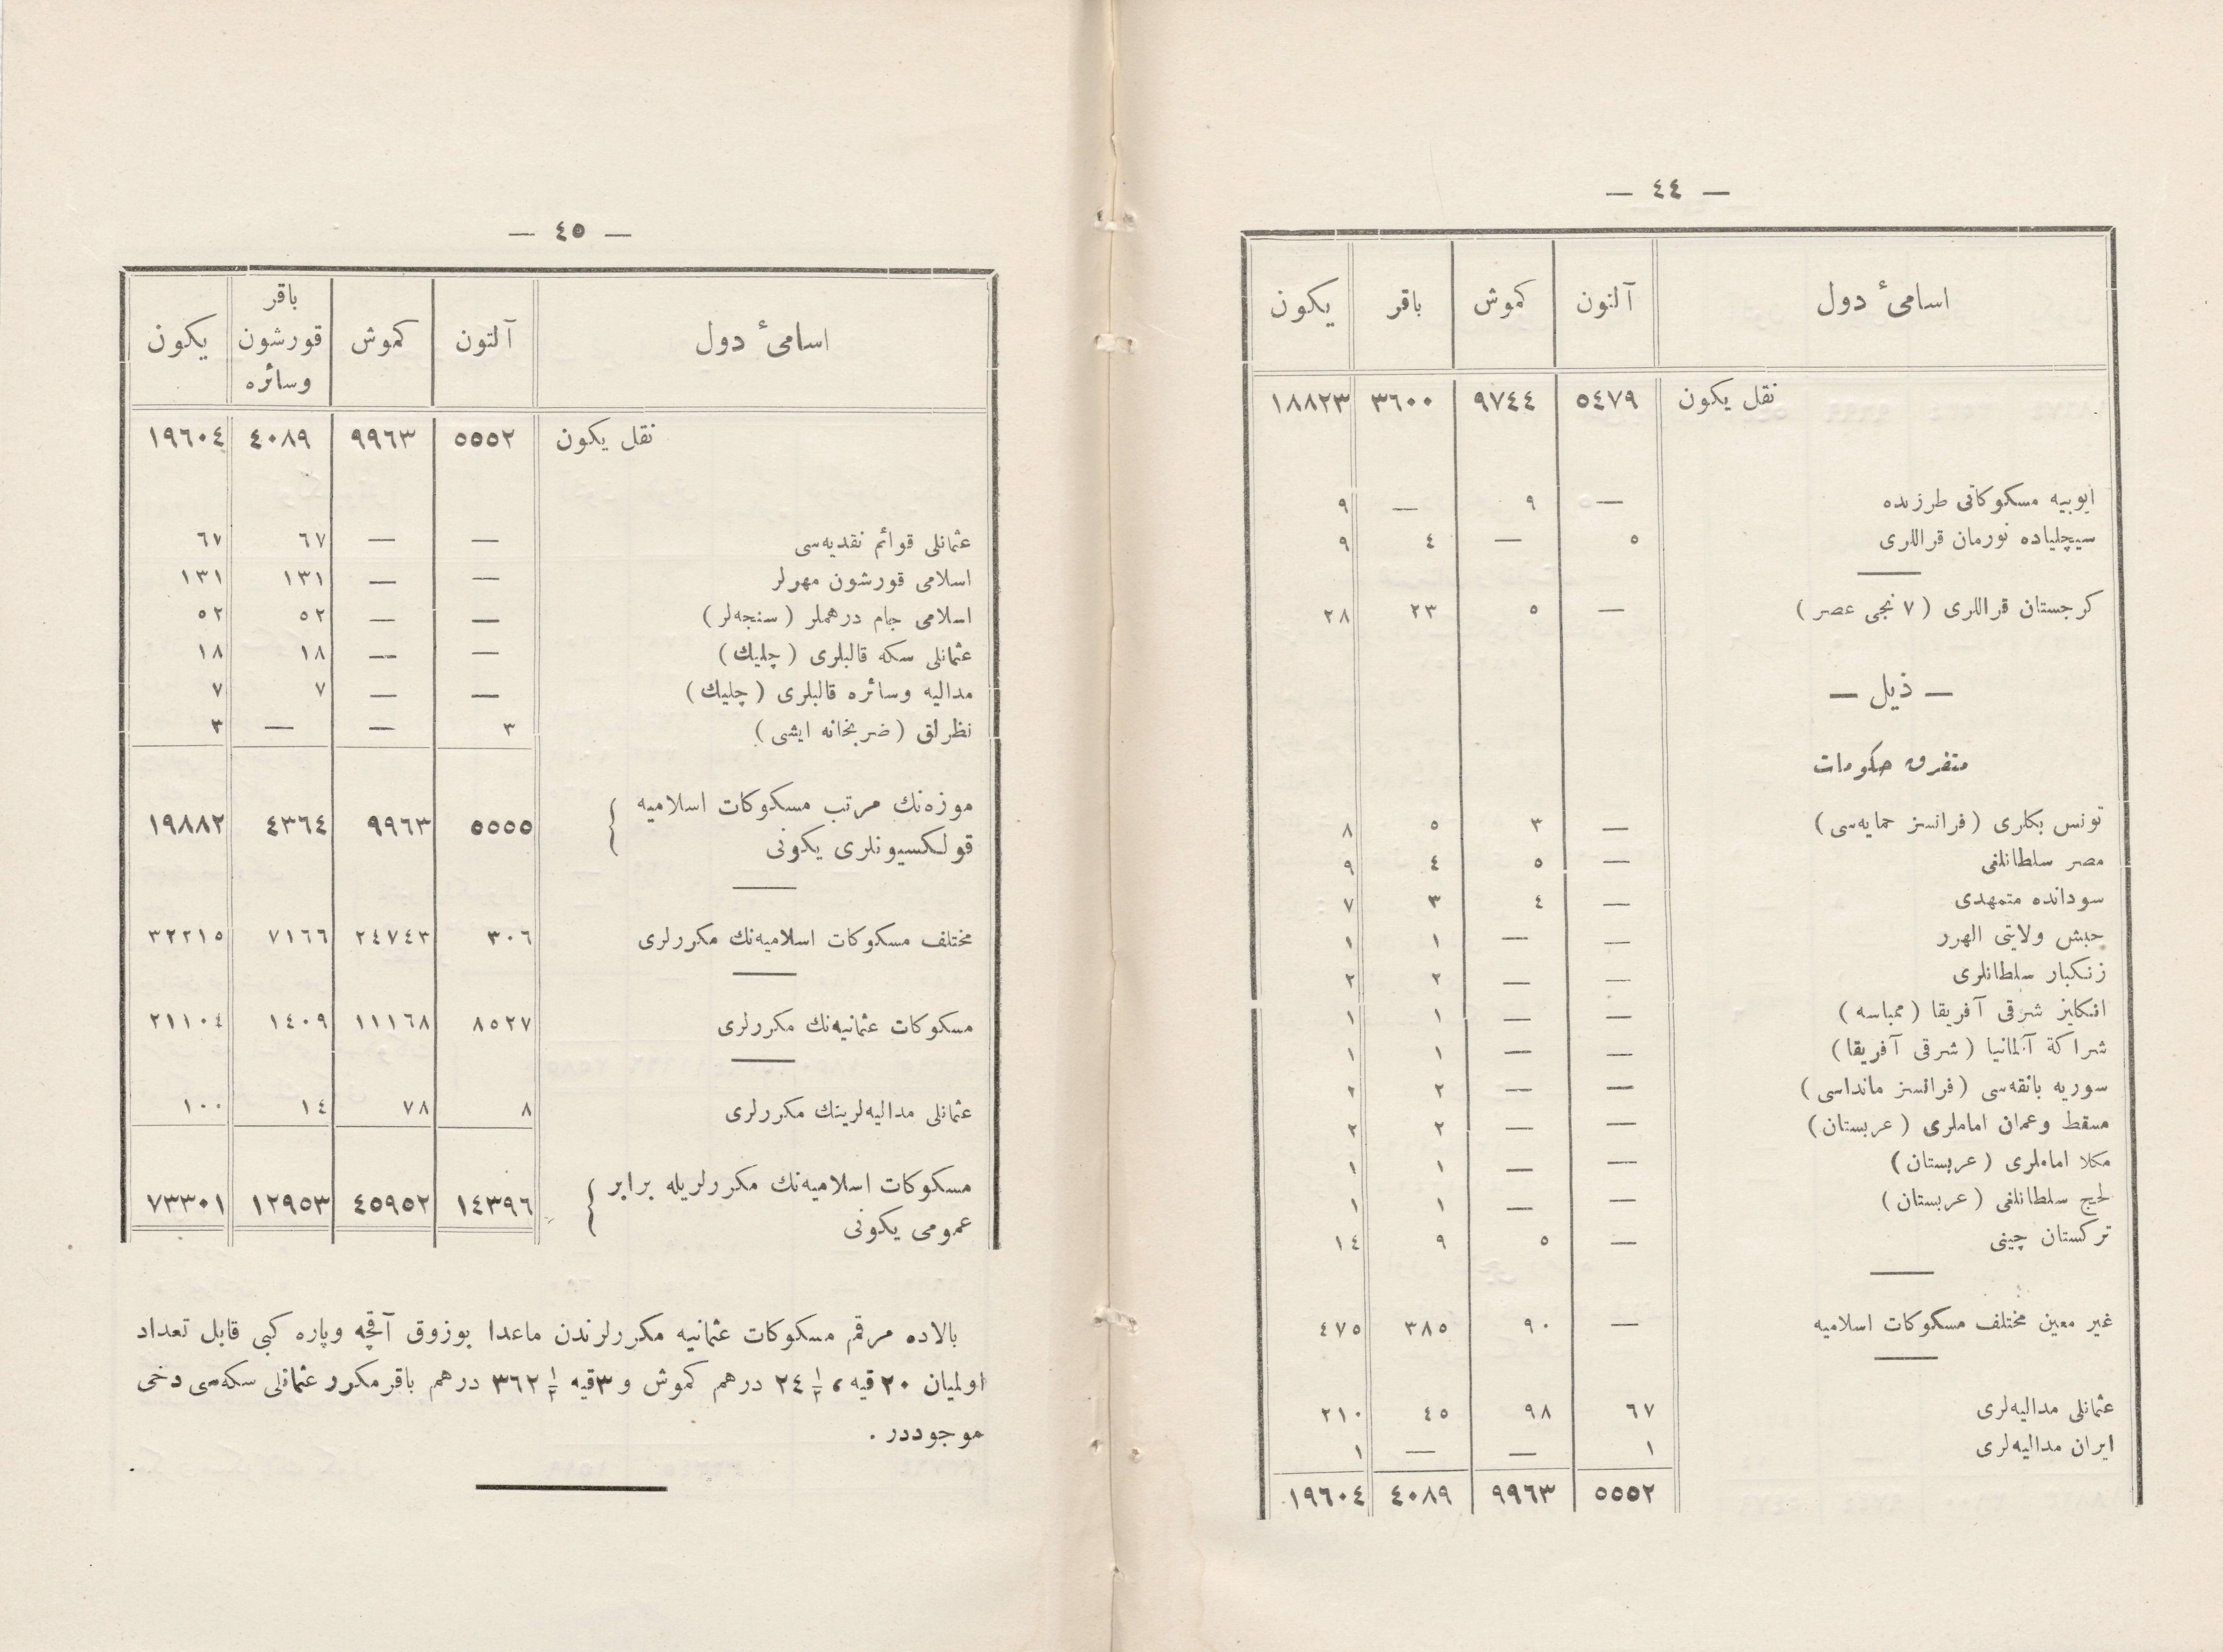 — ٤٤ —
اسامئ دول آلتون كموش باقر يكون
نقل يكون ٥٤٧٩ ٩٧٤٤ ٣٦٠٠ ١٨٨٢٣
ايوبيه مسكوكاتى طرزنده — ٩ — ٩
سيچلياده نورمان قراللرى ٥ — ٤ ٩
كرجستان قراللرى (٧ نجى عصر) — ٥ ٢٣ ٢٨
— ذيل —
متفرق حكومات
تونس بكلرى (فرانسز حمايه‌سى) — ٣ ٥ ٨
مصر سلطانلغى — ٥ ٤ ٩
سودانده متمهدى — ٤ ٣ ٧
حبش ولايتى الهرر — — ١ ١
زنكبار سلطانلرى — — ٢ ٢
انكليز شرقى آفريقا (ممباسه) — — ١ ١
شراكة آلمانيا (شرقى آفريقا) — — ١ ١
سوريه بانقه‌سى (فرانسز مانداسى) — — ٢ ٢
مسقط وعمان اماملرى (عربستان) — — ٢ ٢
مكلا اماملرى (عربستان) — — ١ ١
لحج سلطانلغى (عربستان) — — ١ ١
تركستان چينى — ٥ ٩ ١٤
غير معين مختلف مسكوكات اسلاميه — ٩٠ ٣٨٥ ٤٧٥
عثمانلى مداليه‌لرى ٦٧ ٩٨ ٤٥ ٢١٠
ايران مداليه‌لرى ١ — — ١
٥٥٥٢ ٩٩٦٣ ٤٠٨٩ ١٩٦٠٤
— ٤٥ —
اسامئ دول آلتون كموش باقر قورشون وسائره يكون
نقل يكون ٥٥٥٢ ٩٩٦٣ ٤٠٨٩ ١٩٦٠٤
عثمانلى قوائم نقديه‌سى — — ٦٧ ٦٧
اسلامى قورشون مهرلر — — ١٣١ ١٣١
اسلامى جام درهملر (سنجه‌لر) — — ٥٢ ٥٢
عثمانلى سكه قالبلرى (چليك) — — ١٨ ١٨
مداليه وسائره قالبلرى (چليك) — — ٧ ٧
نظرلق (ضربخانه ايشى) ٣ — — ٣
موزه‌نك مرتب مسكوكات اسلاميه
قولكسيونلرى يكونى ٥٥٥٥ ٩٩٦٣ ٤٣٦٤ ١٩٨٨٢
مختلف مسكوكات اسلاميه‌نك مكررلرى ٣٠٦ ٢٤٧٤٣ ٧١٦٦ ٣٢٢١٥
مسكوكات عثمانيه‌نك مكررلرى ٨٥٢٧ ١١١٦٨ ١٤٠٩ ٢١١٠٤
عثمانلى مداليه‌لرينك مكررلرى ٨ ٧٨ ١٤ ١٠٠
مسكوكات اسلاميه‌نك مكررلريله برابر
عمومى يكونى ١٤٣٩٦ ٤٥٩٥٢ ١٢٩٥٣ ٧٣٣٠١
بالاده مرقم مسكوكات عثمانيه مكررلرندن ماعدا بوزوق آقچه وپاره كبى قابل تعداد
اولميان ٢٠ قيه، ٢٤ ١/٢ درهم كموش و ٣ قيه ٣٦٢ ١/٢ درهم باقر مكرر عثمانلى سكه‌سى دخى
موجوددر .